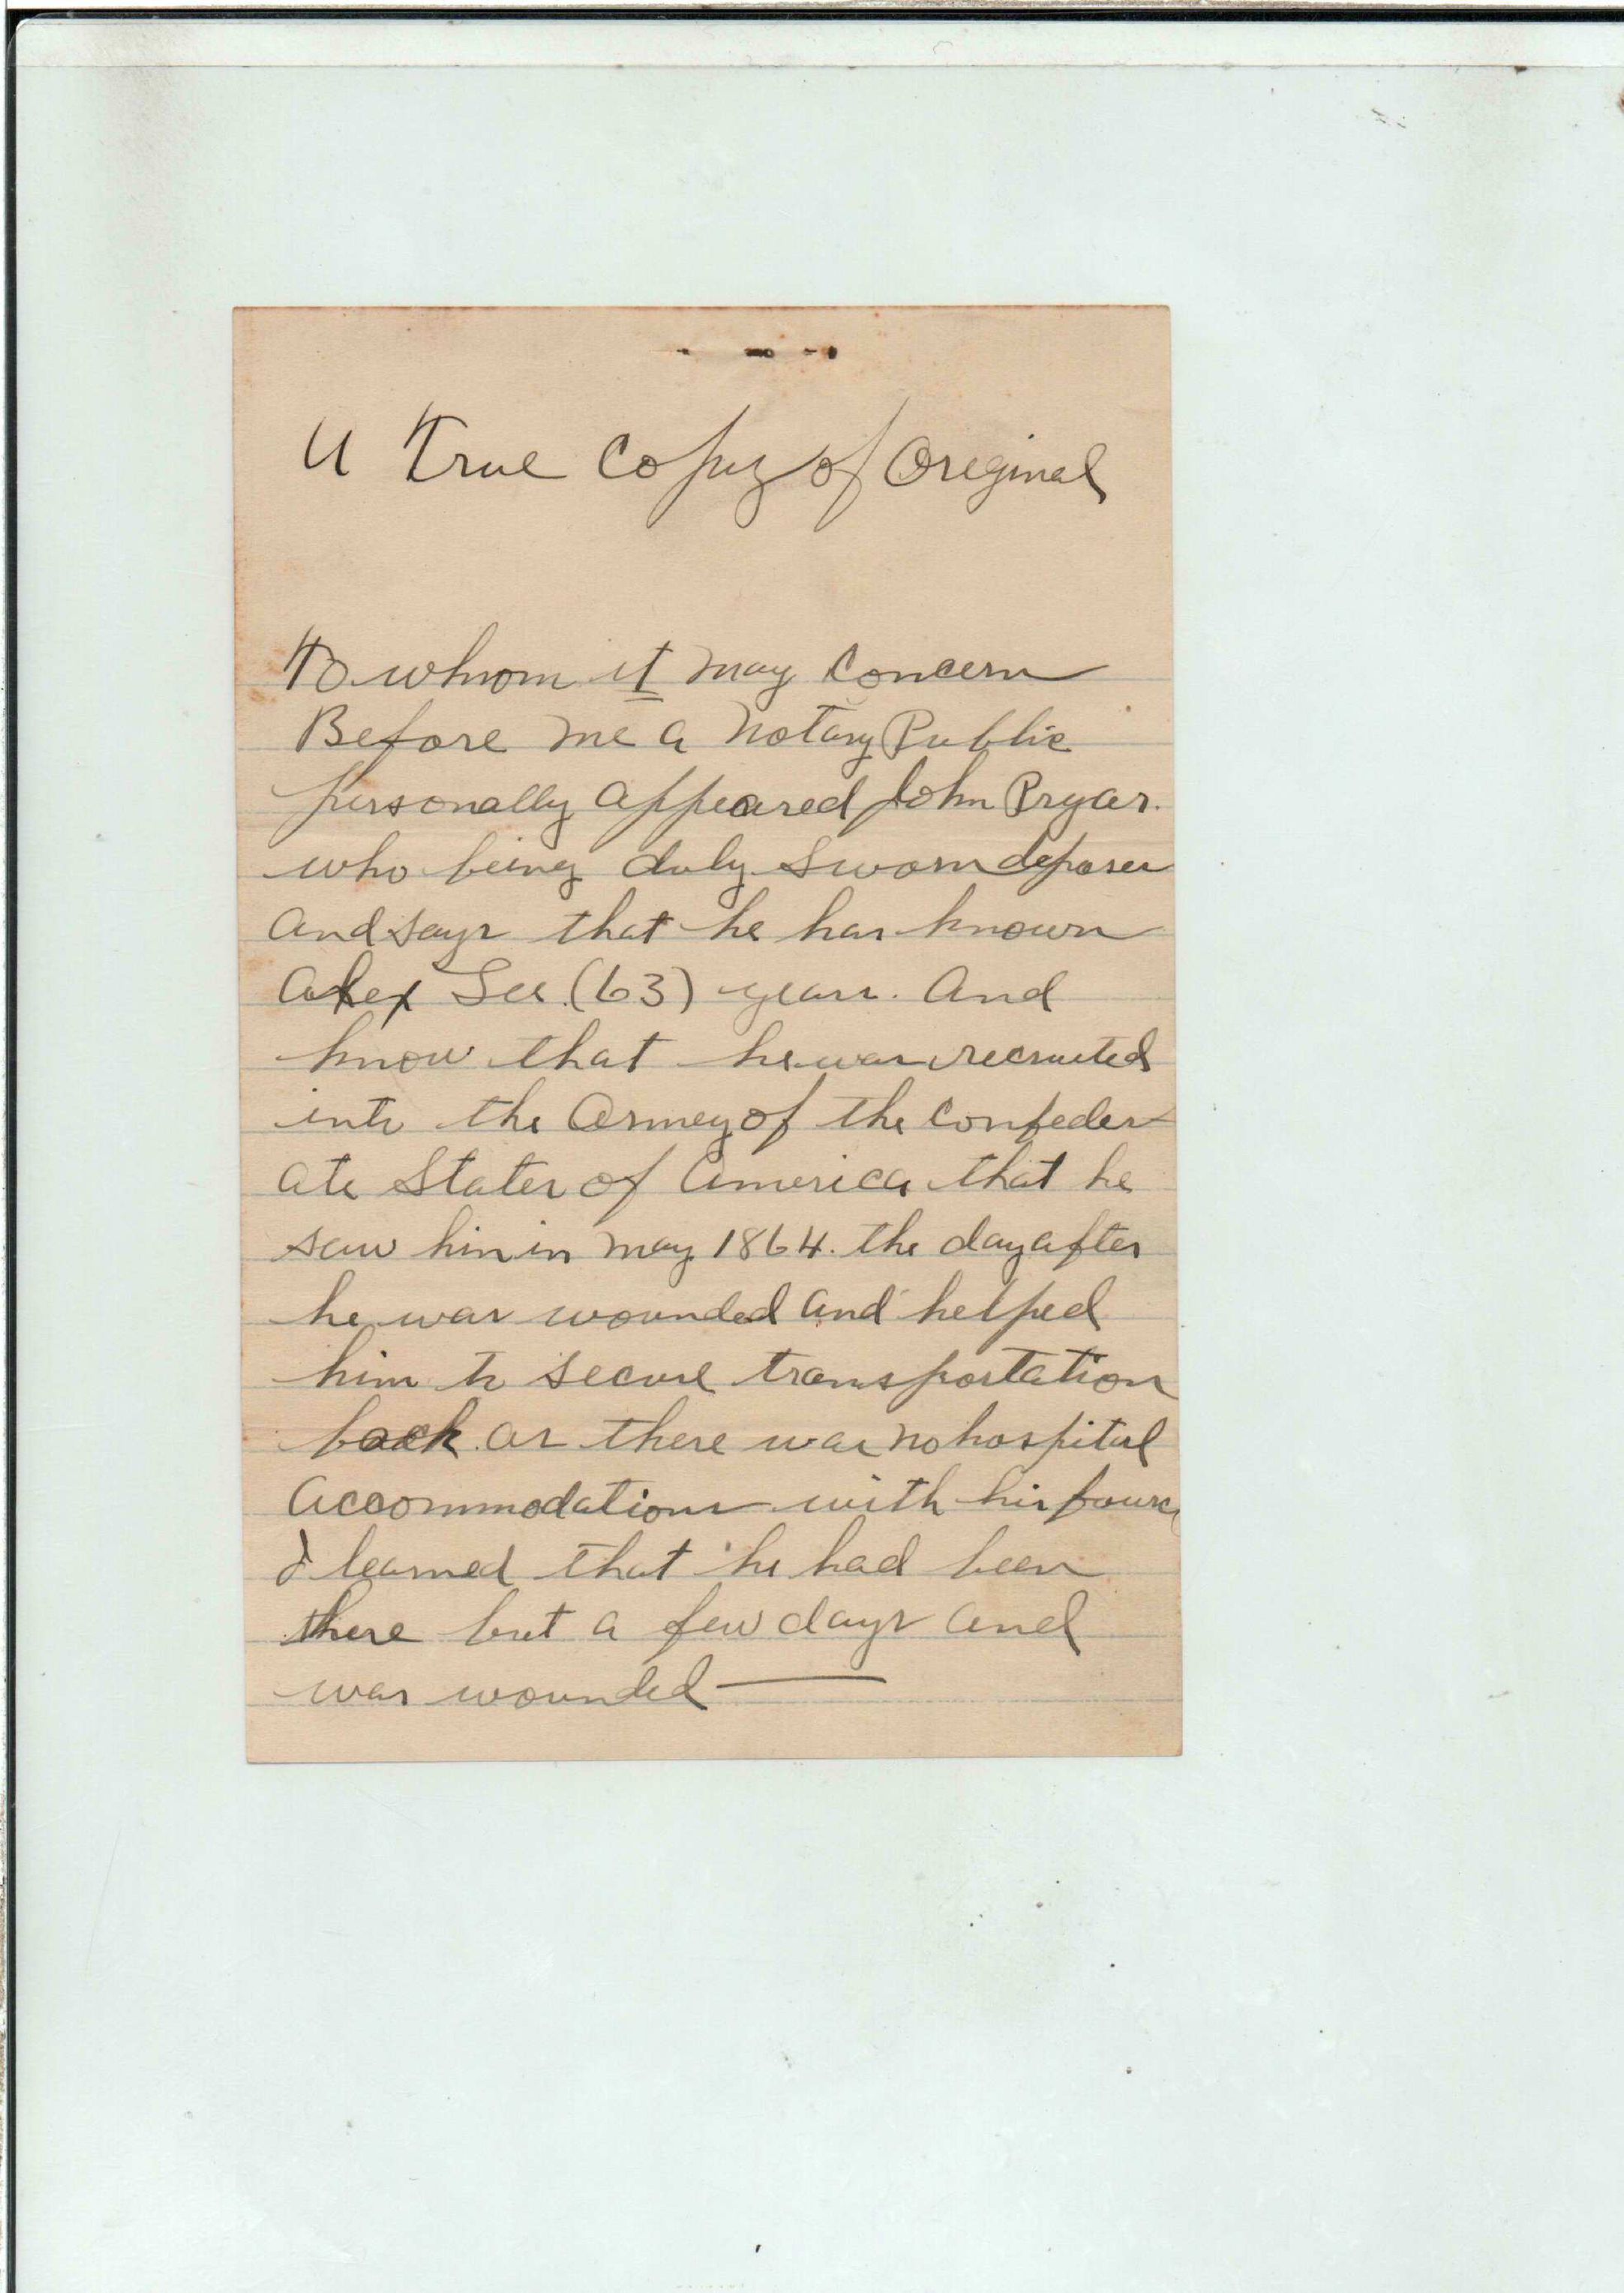 A True Copy of Original
To whom it may Concern
Before me a Notary Public
personally appeared John Pryar.
who being duly sworn deposes
and says that he has known
Alex Lee (63) years. And
know that he was recruited
into the Armey of the Confeder
ate States of America that he
saw him in May 1864. the day after
he was wounded and helped
him to secure transportation
back as there was no hospital
accommodations with his
I learned that he had been
there but a few days and
was wounded